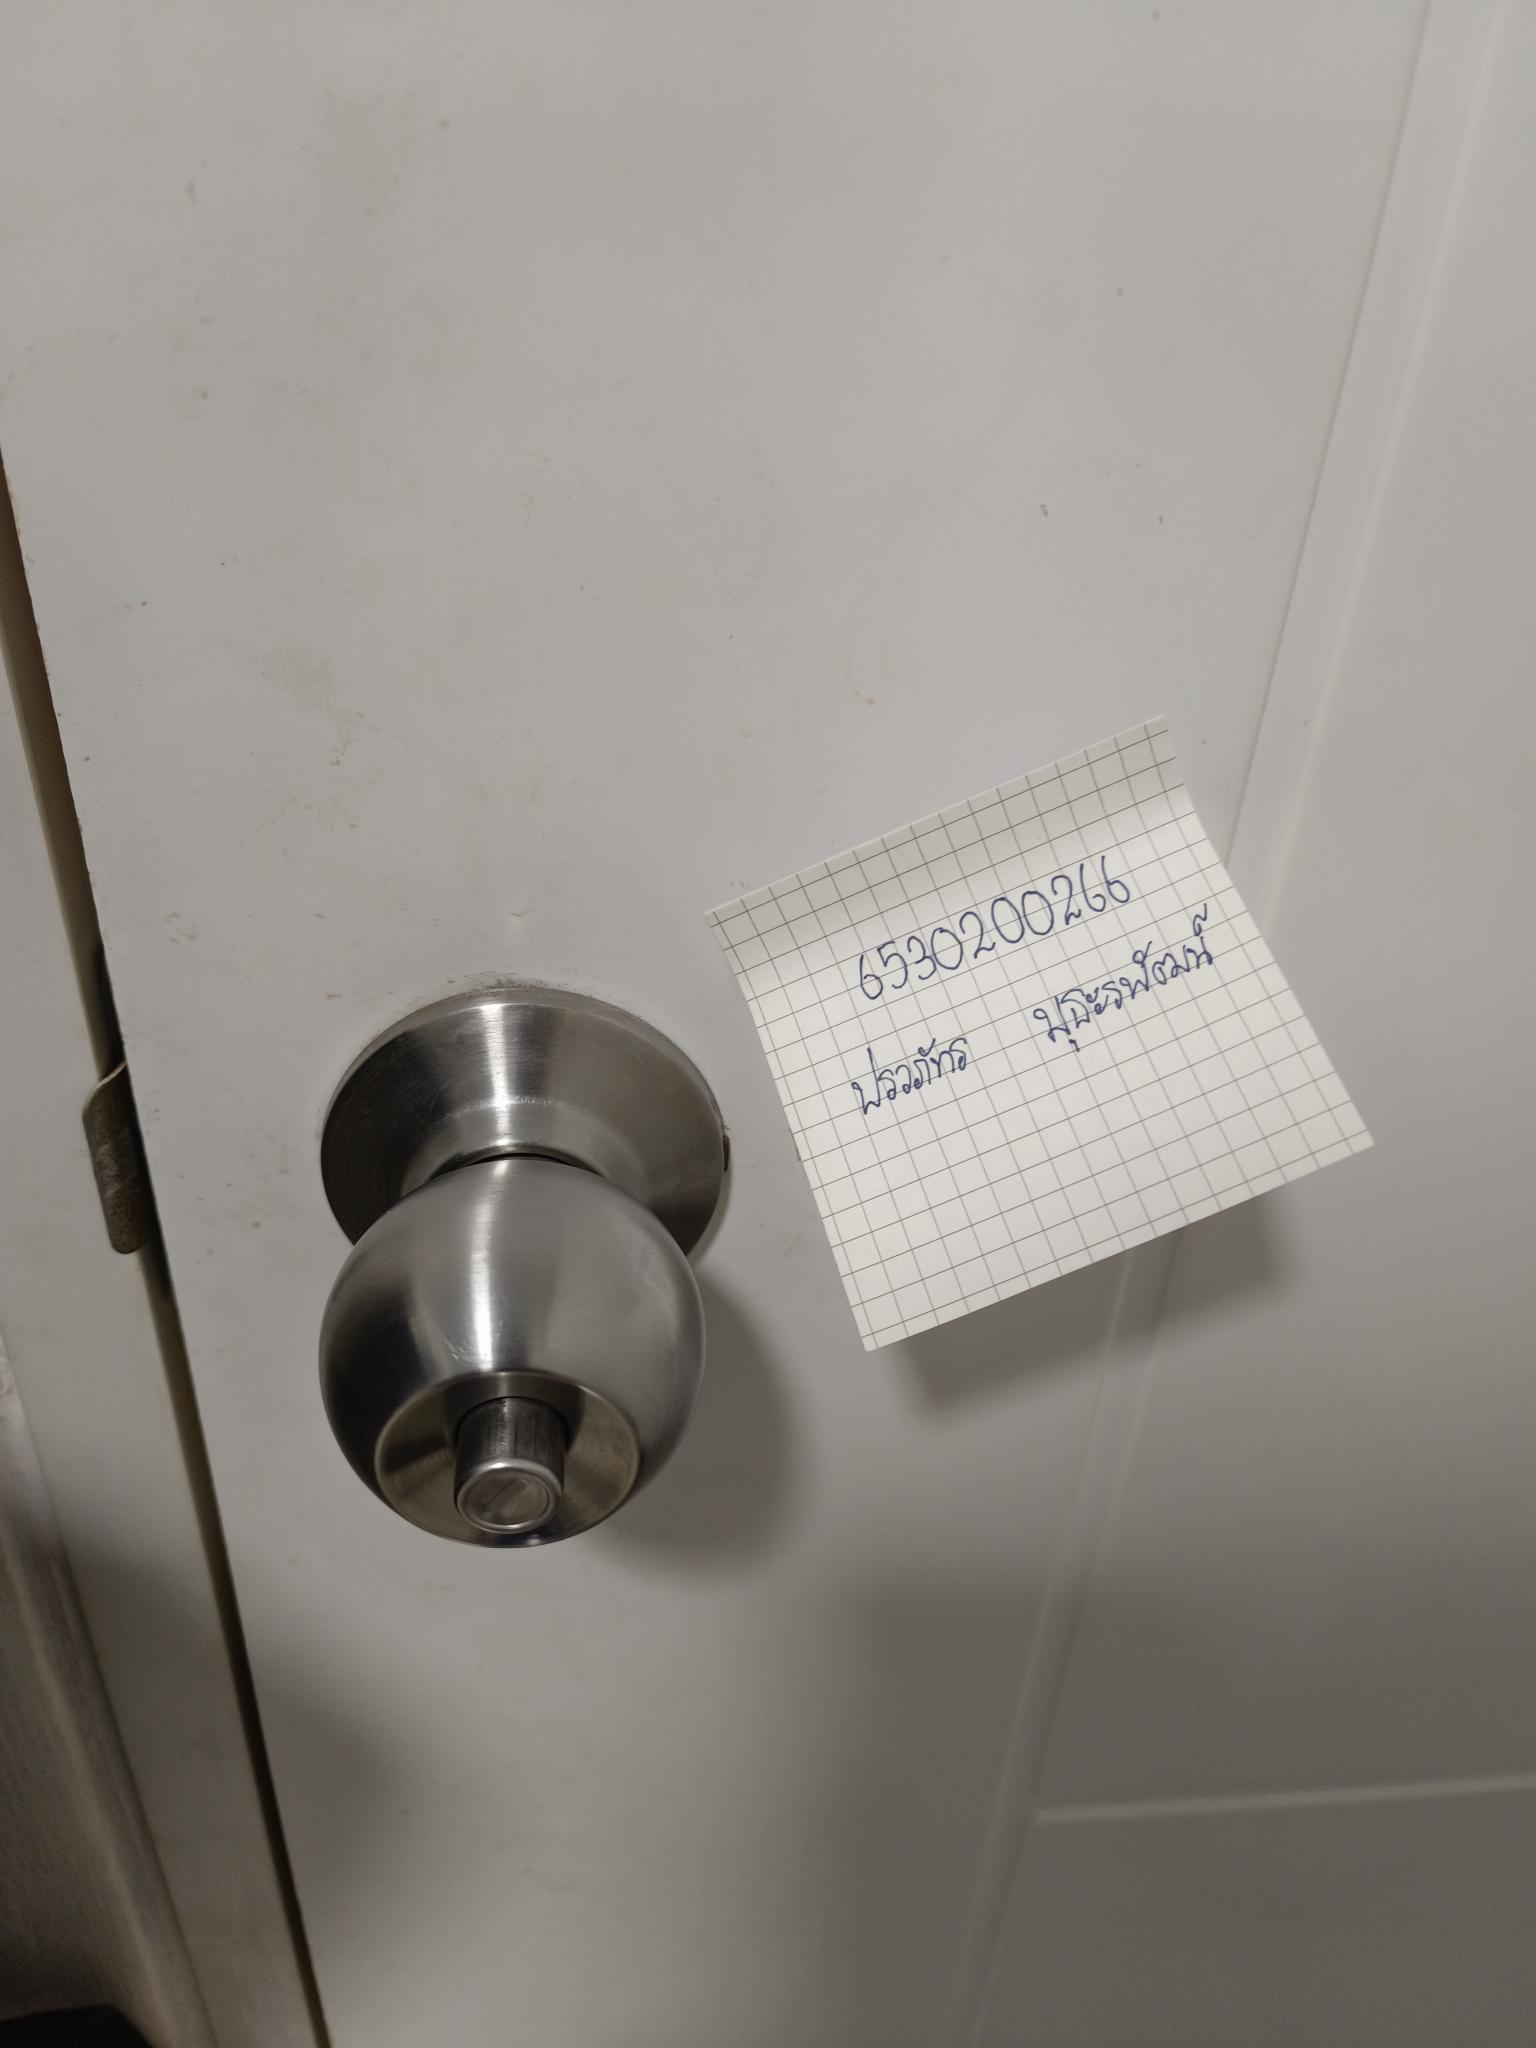 6530200266
ปรวภัทร มุธะรพัฒน์